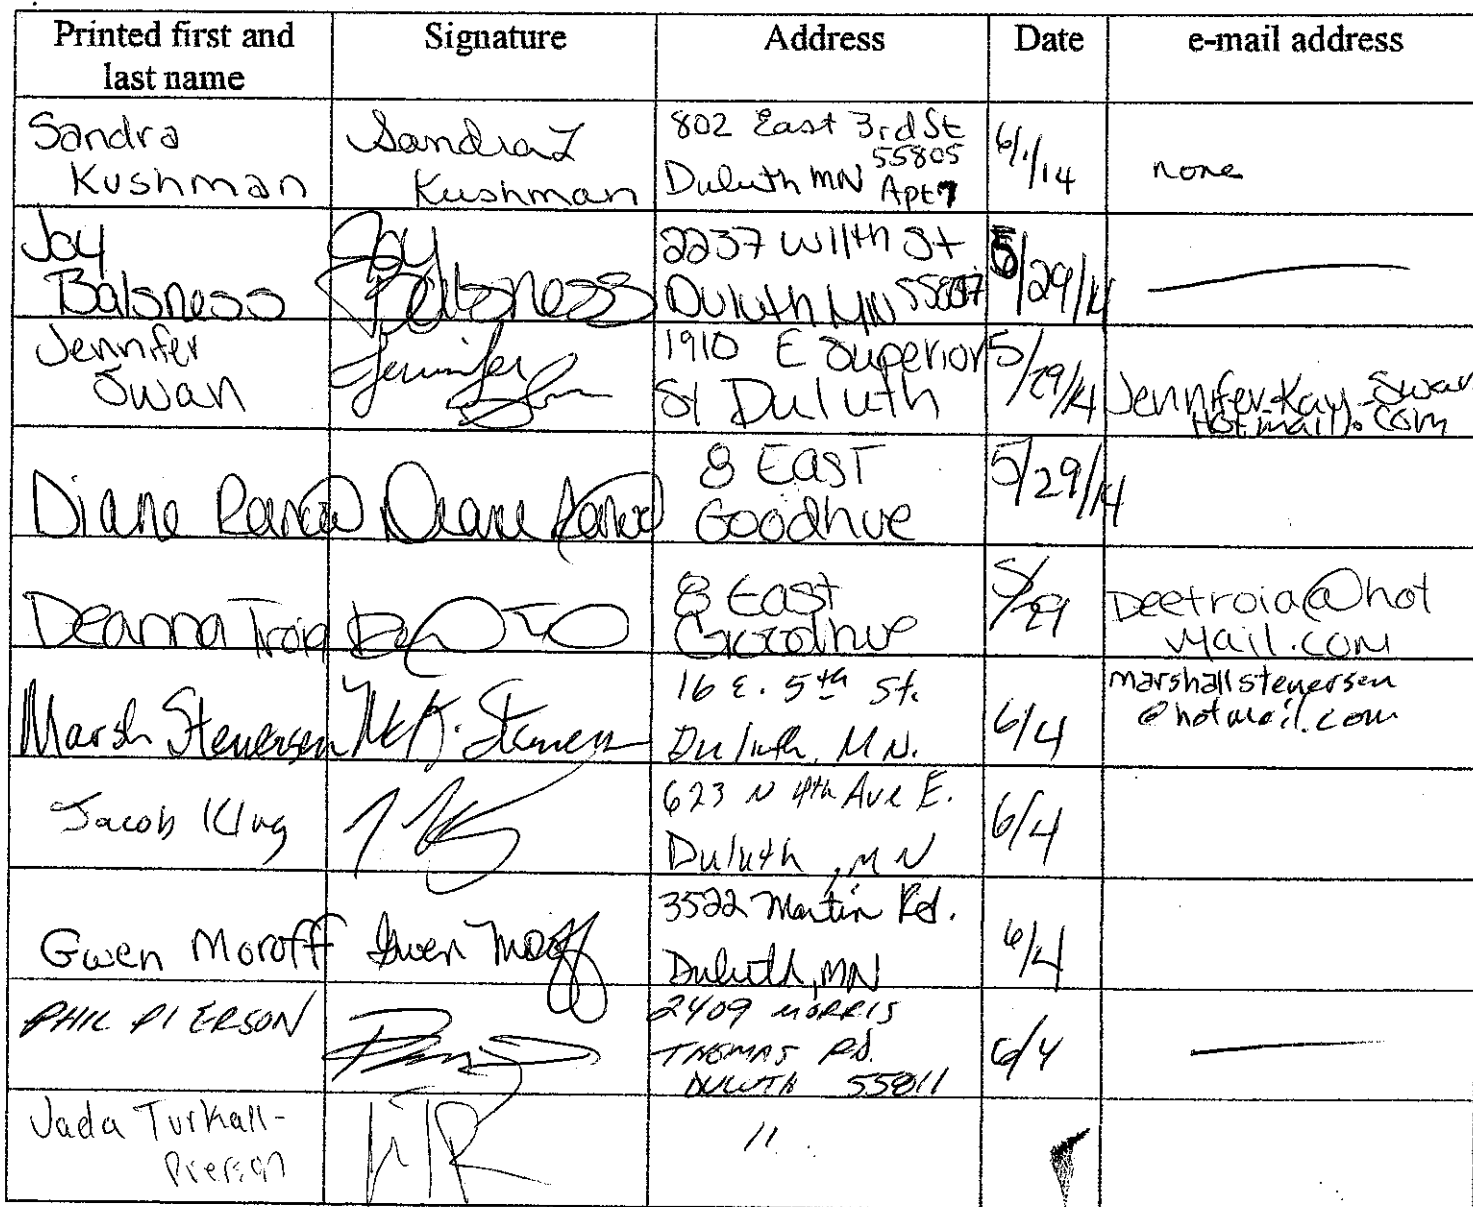 Printed first and last name Signature Address Date e-mail address
Sandra Kushman Sandra L Kushman 802 East 3rd St 55805 Duluth MN Apt 7 6/1/14 none
Joy Balsness Joy Balsness 2237 W 11th St Duluth MN 5/29/14
Jennifer Swan Jennifer 1910 E Superior St Duluth 5/29/14 Jennifer-Kay-Swan Hotmail.com
Diane Diane 8 East Goodhue 5/29/14
Deanna Troia 8 East Goodhue 5/29 Deetroia@hot mail.com
Marsh Steversen 16 E. 5th St. Duluth, MN. 6/4 marshallsteversen @hotmail.com
Jacob Klug 623 N 4th Ave E. Duluth, MN 6/4
Gwen Moroff Gwen Moroff 3522 Martin Rd. Duluth, MN 6/4
PHIL PIERSON 2409 MORRIS THOMAS RD. DULUTH 55811 6/4
Jada Turkall-Pierson 11